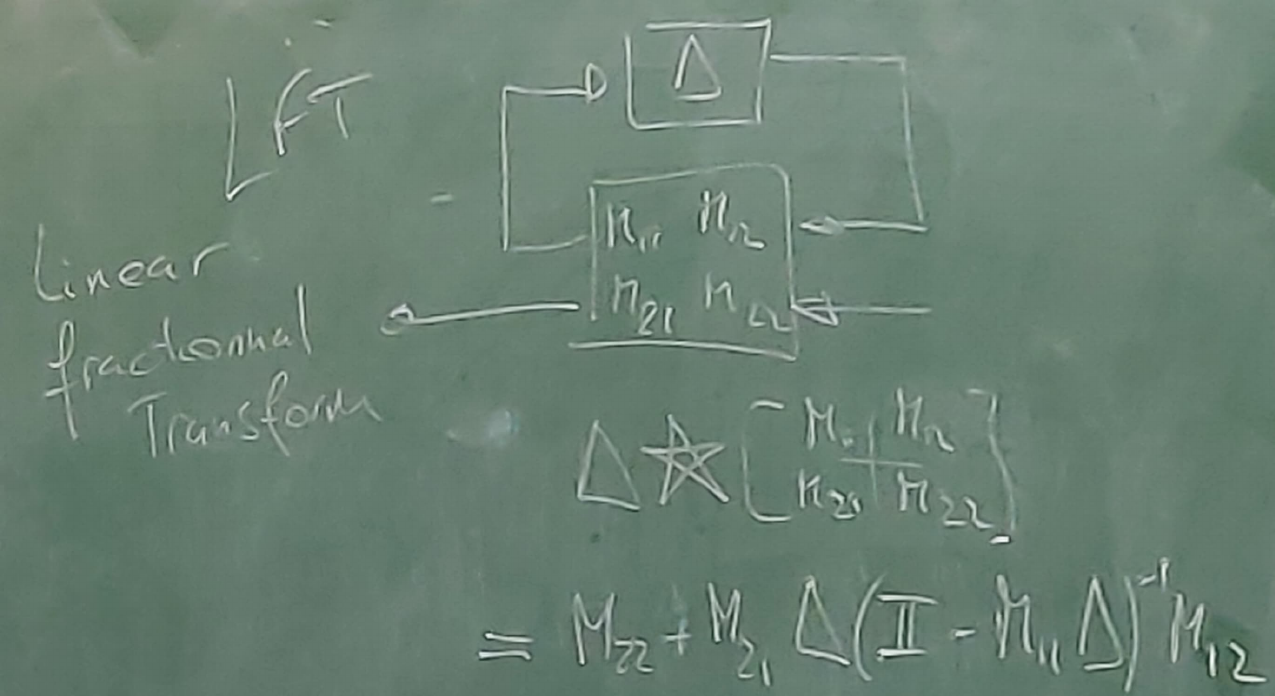 LFT
Linear
fractional
Transform
Δ
M₁₁ M₁₂
M₂₁ M₂₂
Δ ☆ [M₁₁ M₁₂
M₂₁ M₂₂]
= M₂₂ + M₂₁ Δ(𝕀 - M₁₁ Δ)⁻¹ M₁₂